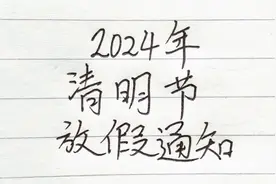 2024年
清明节
放假通知